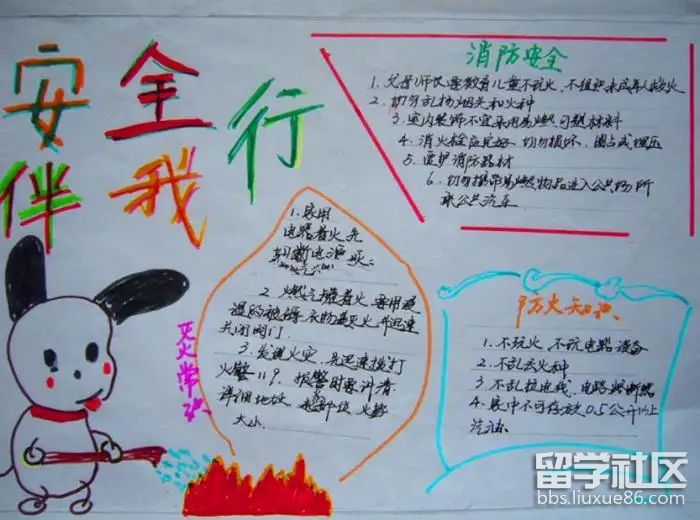 安全
伴我行
消防安全
1. 父母师长要教育儿童不玩火，不组织未成年人救火
2. 切勿乱扔烟头和火种
3. 室内装饰不宜采用易燃可燃材料
4. 消火栓应完好，切勿损坏、圈占或埋压
5. 爱护消防器材
6. 切勿携带易燃物品进入公共场所
公共汽车
1. 家用
电路着火先
切断电源
2. 着火，要用浸
湿的衣物盖灭火，并迅速
关闭阀门
3. 发现火灾，迅速拨打
火警119，报警时要讲清
详细地址、起部位、火势
大小
灭火常识
防火知识
1. 不玩火，不玩电路设备
2. 不乱丢火种
3. 不乱拉电线，电路
4. 家中不可存放0.5公斤以上
汽油
留学社区
bbs.liuxue86.com